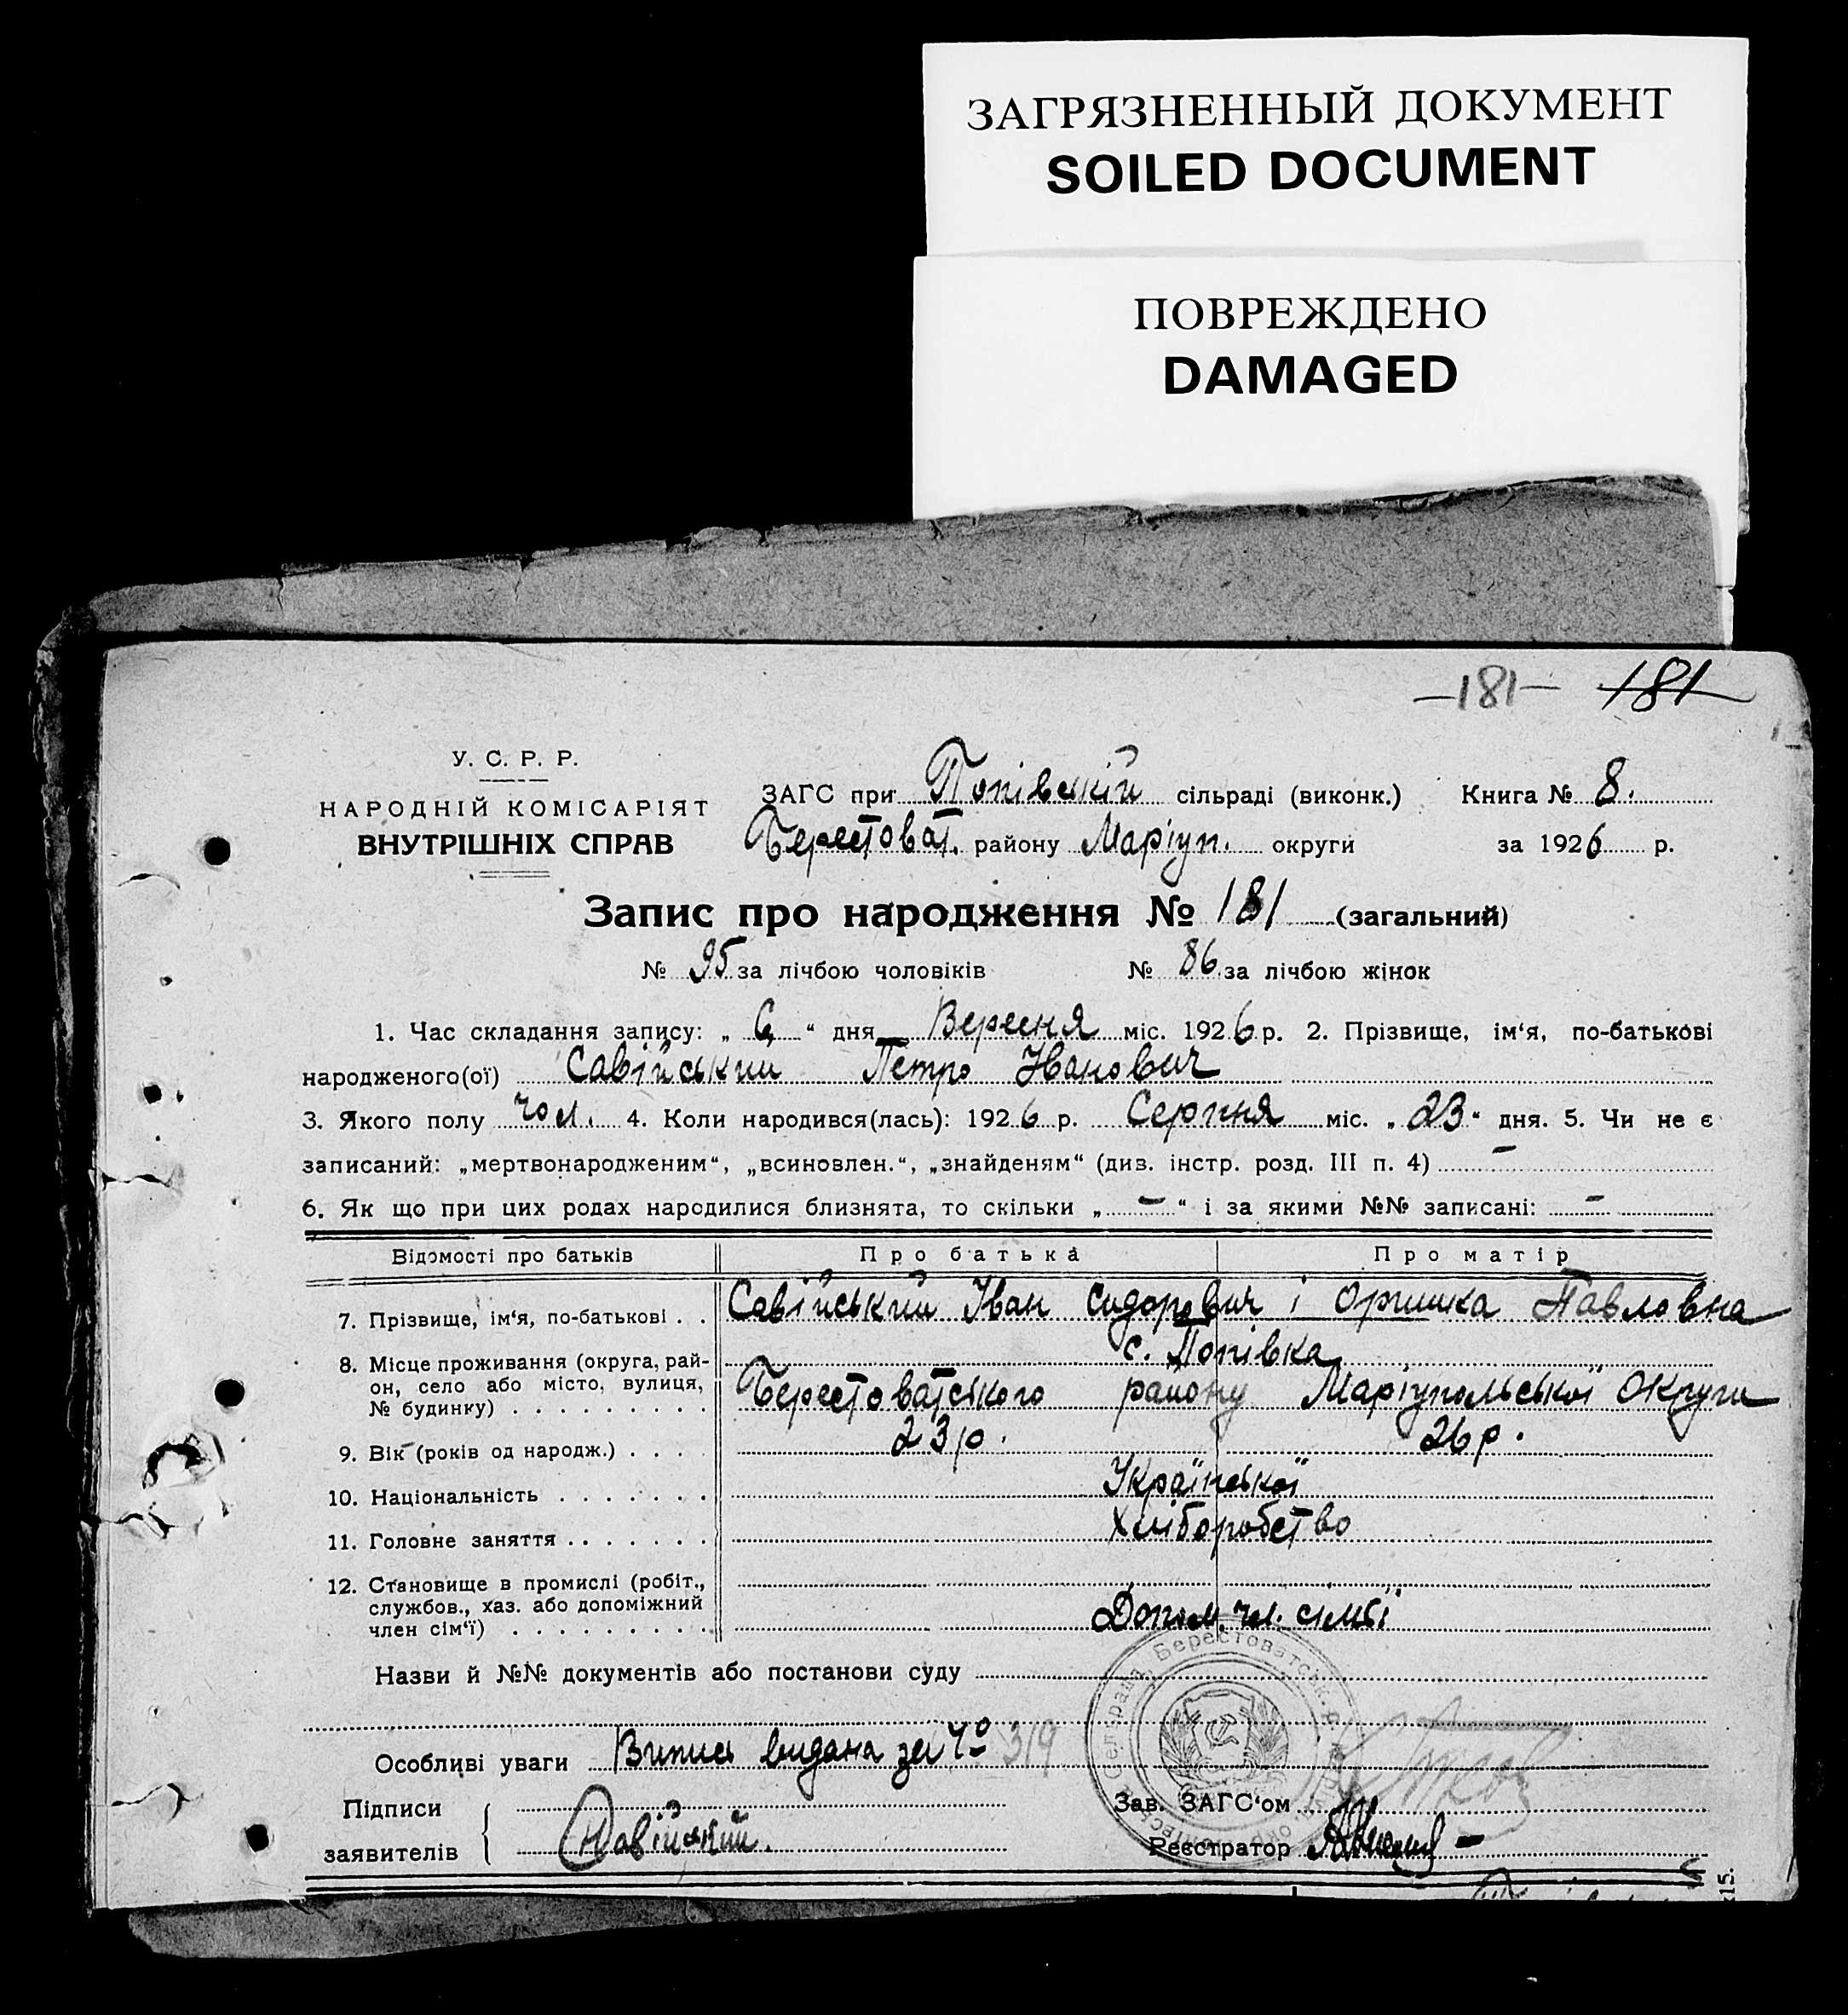 ЗАГРЯЗНЕННЫЙ ДОКУМЕНТ
SOILED DOCUMENT
ПОВРЕЖДЕНО
DAMAGED
—181— 181
У. С. Р. Р.
НАРОДНІЙ КОМІСАРІЯТ
ВНУТРІШНІХ СПРАВ
ЗАГС при Попівській сільраді (виконк.) Книга № 8.
Берестоват. району Маріуп. округи за 1926 р.
Запис про народження № 181 (загальний)
№ 95 за лічбою чоловіків № 86 за лічбою жінок
1. Час складання запису: „ 6 “ дня Вересня міс. 1926 р. 2. Прізвище, ім‘я, по-батькові
народженого(ої) Савійський Петро Іванович
3. Якого полу чол. 4. Коли народився(лась): 1926 р. Серпня міс. „ 23 “ дня. 5. Чи не є
записаний: „мертвонародженим“, „всиновлен.“, „знайденям“ (див. інстр. розд. III п. 4) —
6. Як що при цих родах народилися близнята, то скільки „ — “ і за якими №№ записані: —
Відомості про батьків Про батька Про матір
7. Прізвище, ім‘я, по-батькові . . Савійський Іван Сидорович і Оришка Павловна
8. Місце проживання (округа, рай- с. Попівка
он, село або місто, вулиця, Берестоватського району Маріупольської Округи
№ будинку) . . . . . . . . .
9. Вік (років од народж.) . . . . 23 р. 26 р.
10. Національність . . . . . . . Української
11. Головне заняття . . . . . . . Хліборобство
12. Становище в промислі (робіт.,
службов., хаз. або допоміжний
член сім‘ї) . . . . . . . . . Допом. чл. сімї
Назви й №№ документів або постанови суду
Особливі уваги Випись видана за № 319
Підписи Зав. ЗАГС‘ом
заявителів Савійський. Реєстратор